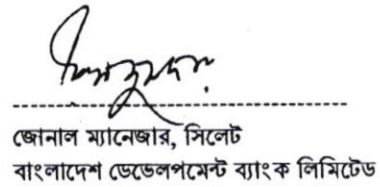 জোনাল ম্যানেজার, সিলেট
বাংলাদেশ ডেভেলপমেন্ট ব্যাংক লিমিটেড